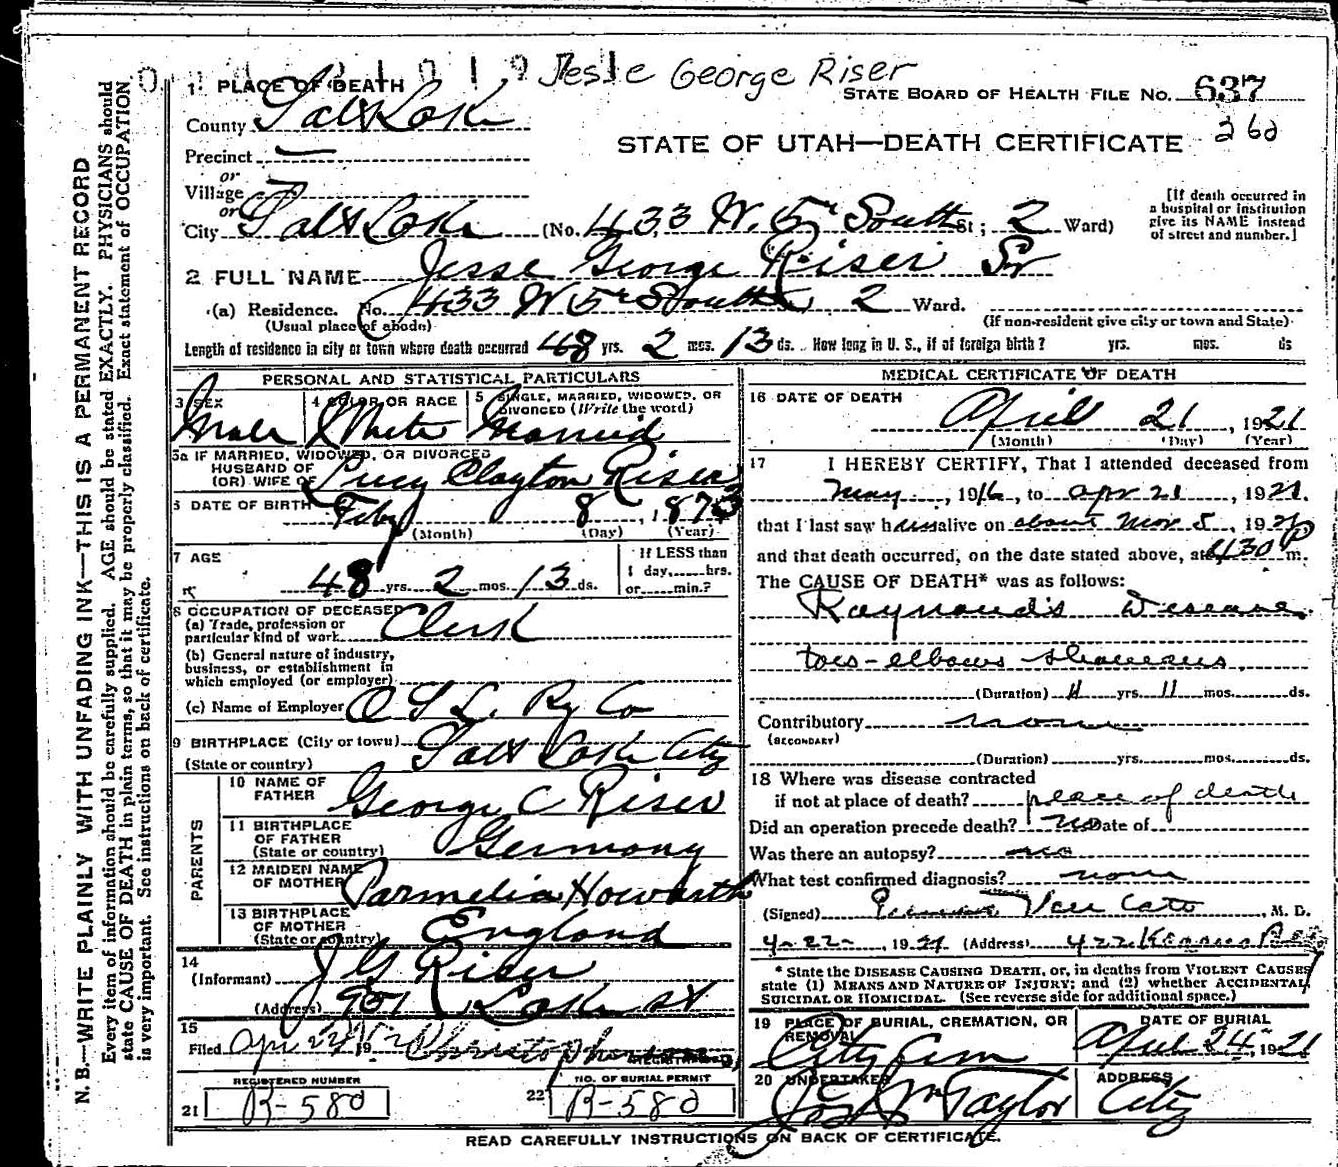 Jesse George Riser
1 PLACE OF DEATH
STATE BOARD OF HEALTH FILE No. 637
County Salt Lake
260
STATE OF UTAH—DEATH CERTIFICATE
Precinct —
or
Village
or
City Salt Lake (No. 433 W. 5th South St; 2 Ward)
[If death occurred in a hospital or institution give its NAME instead of street and number.]
2 FULL NAME Jesse George Riser Sr
(a) Residence. No. 433 W 5th South 2 Ward.
(Usual place of abode) (If non-resident give city or town and State)
Length of residence in city or town where death occurred 48 yrs. 2 mos. 13 ds. How long in U. S., if of foreign birth? yrs. mos. ds
PERSONAL AND STATISTICAL PARTICULARS
3 SEX Male
4 COLOR OR RACE White
5 SINGLE, MARRIED, WIDOWED, OR DIVORCED (Write the word) Married
5a IF MARRIED, WIDOWED, OR DIVORCED
HUSBAND OF
(OR) WIFE OF Lucy Clayton Riser
6 DATE OF BIRTH Feby 8, 1873
(Month) (Day) (Year)
7 AGE
48 yrs. 2 mos. 13 ds.
If LESS than
1 day,......hrs.
or......min.?
8 OCCUPATION OF DECEASED
(a) Trade, profession or
particular kind of work Clerk
(b) General nature of industry,
business, or establishment in
which employed (or employer)
(c) Name of Employer O S L. Ry Co
9 BIRTHPLACE (City or town) Salt Lake City
(State or country)
PARENTS
10 NAME OF
FATHER George C Riser
11 BIRTHPLACE
OF FATHER
(State or country) Germany
12 MAIDEN NAME
OF MOTHER Parmelia Howarth
13 BIRTHPLACE
OF MOTHER
(State or country) England
14
(Informant) J G Riser
(Address) 951 Lake St
15
Filed Apr 22 19
REGISTERED NUMBER
21 B-580
NO. OF BURIAL PERMIT
22 B-580
MEDICAL CERTIFICATE OF DEATH
16 DATE OF DEATH
April 21, 1921
(Month) (Day) (Year)
17 I HEREBY CERTIFY, That I attended deceased from
May, 1916, to Apr 21, 1921.
that I last saw him alive on about Nov 5, 192
and that death occurred, on the date stated above, at 430 P m.
The CAUSE OF DEATH* was as follows:
Raynaud's Disease
toes-elbows
(Duration) 4 yrs. 11 mos. ds.
Contributory none
(SECONDARY)
(Duration) yrs. mos. ds.
18 Where was disease contracted
if not at place of death? place of death
Did an operation precede death? no Date of
Was there an autopsy? no
What test confirmed diagnosis? none
(Signed) Van Cott, M. D.
4-22-, 1921 (Address) 422 Kearns Bldg
* State the DISEASE CAUSING DEATH, or, in deaths from VIOLENT CAUSES
state (1) MEANS AND NATURE OF INJURY; and (2) whether ACCIDENTAL,
SUICIDAL OR HOMICIDAL. (See reverse side for additional space.)
19 PLACE OF BURIAL, CREMATION, OR
REMOVAL
City Cem
DATE OF BURIAL
April 24, 1921
20 UNDERTAKER
Jos Wm Taylor
ADDRESS
City
READ CAREFULLY INSTRUCTIONS ON BACK OF CERTIFICATE.
N. B.—WRITE PLAINLY WITH UNFADING INK—THIS IS A PERMANENT RECORD
Every item of information should be carefully supplied. AGE should be stated EXACTLY. PHYSICIANS should
state CAUSE OF DEATH in plain terms, so that it may be properly classified. Exact statement of OCCUPATION
is very important. See instructions on back of certificate.